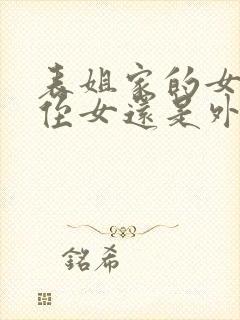 表姐家的女
侄女還是外
銘希